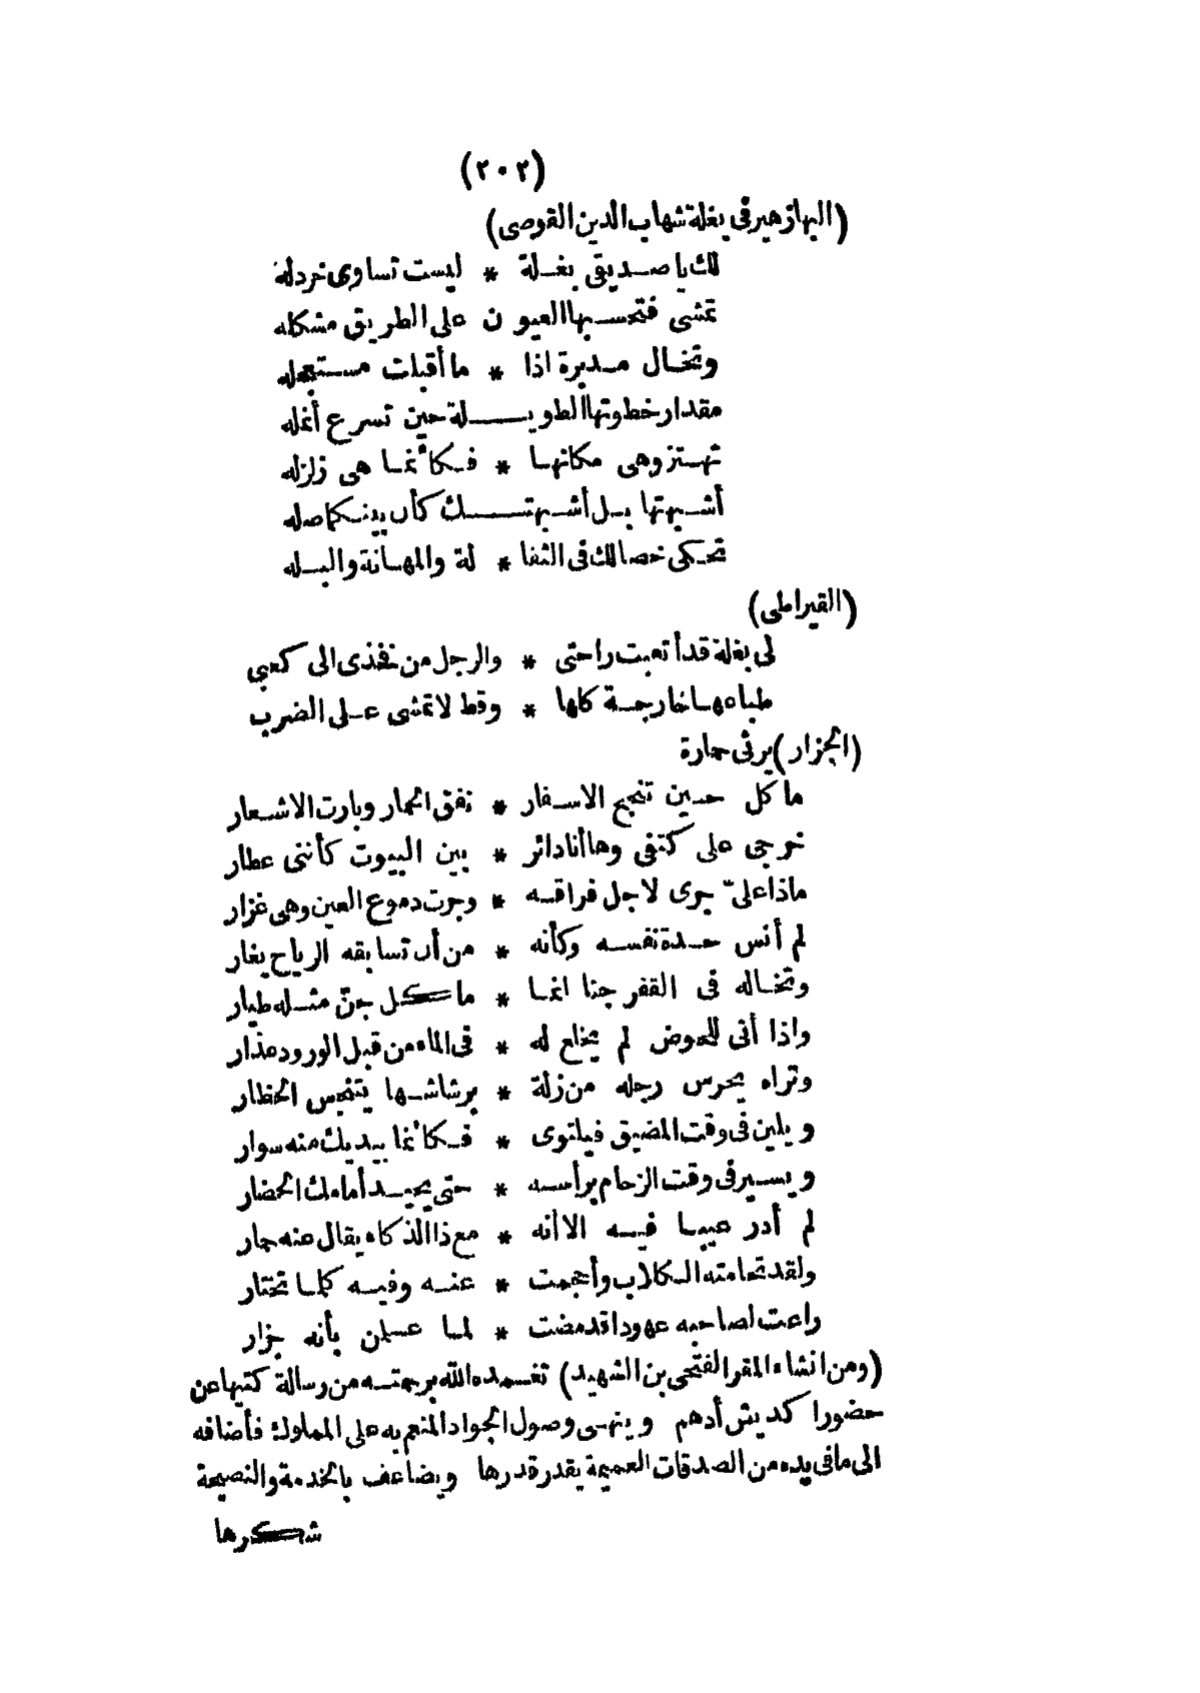 (٢٠٢)
(البهازهير فى بغلة شهاب الدين القوصى)
لك يا صديقى بغلة * ليست تساوى خردله
تمشى فتحسبها العيو ن على الطريق مشكله
وتخال مدبرة اذا * ما أقبلت مستعجله
مقدار خطوتها الطويلة حين تسرع أنمله
تهتز وهى مكانها * فكأنما هى زلزله
أشبهتها بل أشبهتك كأن بينكما صله
تحكى خصالك فى الثقا * لة والمهانة والبله
(القيراطى)
لى بغلة قد أتعبت راحتى * والرجل من فخذى الى كعبى
طباعها خارجة كلها * وقط لا تمشى على الضرب
(الجزار) يرثى حماره
ما كل حين تنجح الاسفار * نفق الحمار وبارت الاشعار
خرجى على كتفى وها أنا دائر * بين البيوت كأننى عطار
ماذا علىّ جرى لاجل فراقه * وجرت دموع العين وهى غزار
لم أنس حدة نفسه وكأنه * من أن تسابقه الرياح يغار
وتخاله فى القفر جنا انما * ما كل جنّ مثله طيار
واذا أتى للحوض لم يخلع له * فى الماء من قبل الورود عذار
وتراه يحرس رجله من زلة * برشاشها يتنجس الحظار
ويلين فى وقت المضيق فيلتوى * فكأنما بيديك منه سوار
ويسير فى وقت الزحام برأسه * حتى يحيد أمامك الحضار
لم أدر عيبا فيه الا أنه * مع ذا الذكاء يقال عنه حمار
ولقد تحامته الكلاب وأحجمت * عنه وفيه كلما تختار
راعت لصاحبه عهودا قدمضت * لما علمن بأنه جزار
(ومن انشاء المقر الفتحى بن الشهيد) تغمده الله برحمته من رسالة كتبها عن
حضورا كديش أدهم وينهى وصول الجواد المنعم به على المملوك فأضافه
الى ما فى يده من الصدقات العميمة بقدر قدرها ويضاعف بالخدمة والنصيحة
شكرها